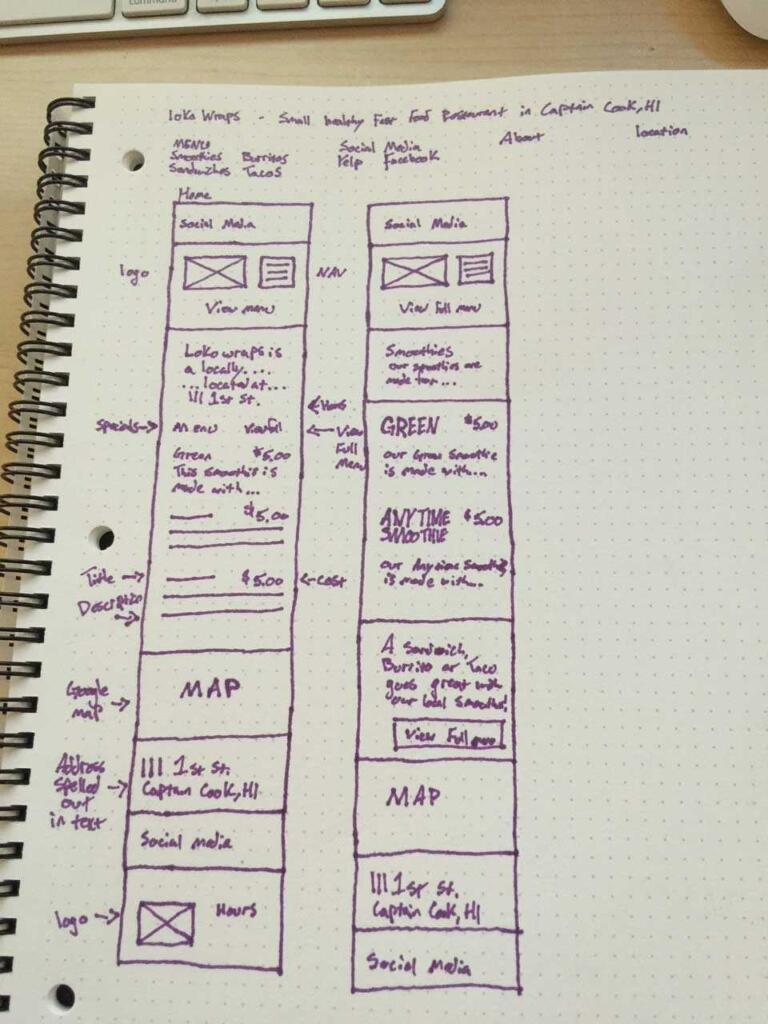 command
Loko Wraps - Small healthy Fast Food Restaurant in Captain Cook, HI
MENU
Smoothies Burritos
Sandwiches Tacos
Social Media
Yelp Facebook
About
location
Home
Social Media
logo
NAV
View menu
Loko wraps is
a locally....
... located at...
111 1st St.
← Hours
Specials →
Menu View full
← View
Full
Menu
Green $5.00
This smoothie is
made with...
$5.00
Title →
$5.00
← Cost
Description
→
Google
map →
MAP
Address
spelled
out
in text
→
111 1st St.
Captain Cook, HI
Social media
logo →
Hours
Social Media
View Full menu
Smoothies
our smoothies are
made from...
GREEN $5.00
our Green Smoothie
is made with...
ANYTIME $5.00
SMOOTHIE
our Anytime Smoothie
is made with...
A Sandwich,
Burrito or Taco
goes great with
our local smoothies!
View Full menu
MAP
111 1st St.
Captain Cook, HI
Social Media